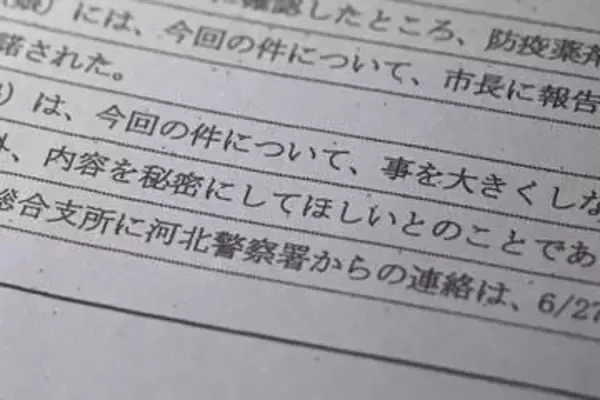 に確認したところ、防疫薬剤
）には、今回の件について、市長に報告
諾された。
）は、今回の件について、事を大きくしな
、内容を秘密にしてほしいとのことであ
総合支所に河北警察署からの連絡は、6/27